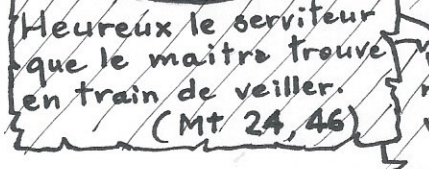 Heureux le serviteur
que le maitre trouve
en train de veiller.
(Mt 24, 46)